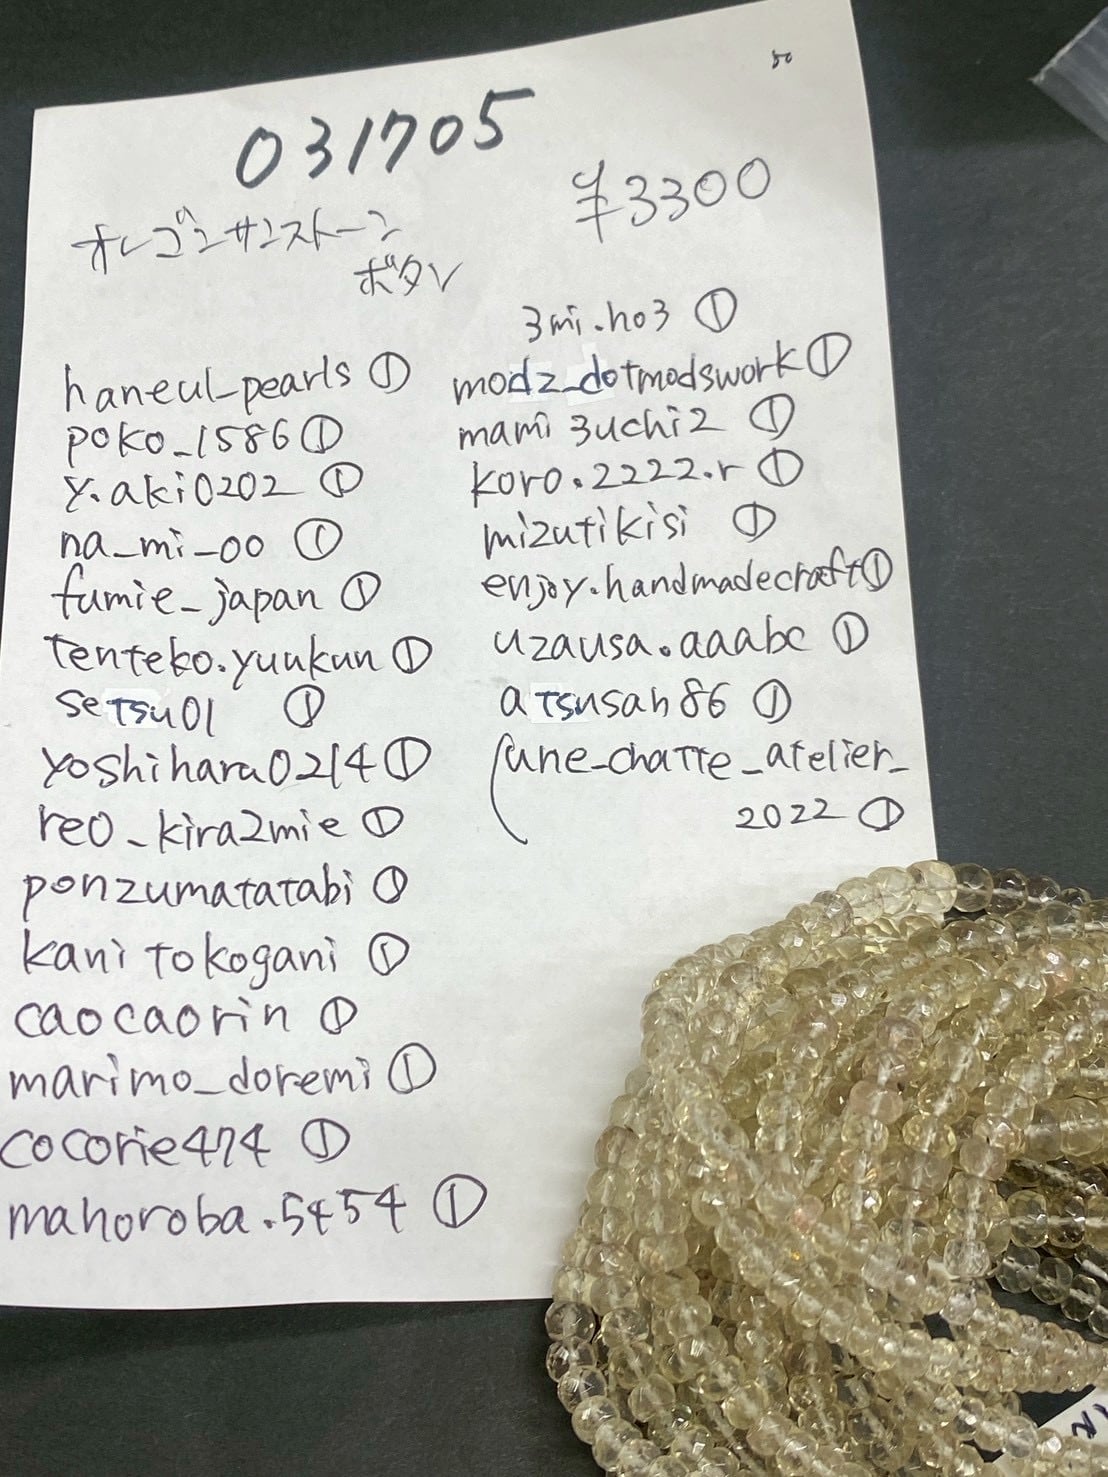 031705
¥3300
オレゴンサンストーン
ボタン
haneul_pearls ①
poko_1586 ①
y.aki0202 ①
na_mi_oo ①
fumie_japan ①
tenteko.yuukun ①
setsu01 ①
yoshihara0214 ①
reo_kira2mie ①
ponzumatatabi ①
kanitokogani ①
caocaorin ①
marimo_doremi ①
cocorie474 ①
mahoroba.5454 ①
3mi.ho3 ①
modz_dotmodswork ①
mami3uchi2 ①
koro.2222.r ①
mizutikisi ①
enjoy.handmadecraft ①
uzausa.aaabc ①
atsusah86 ①
une_chatte_atelier_
2022 ①